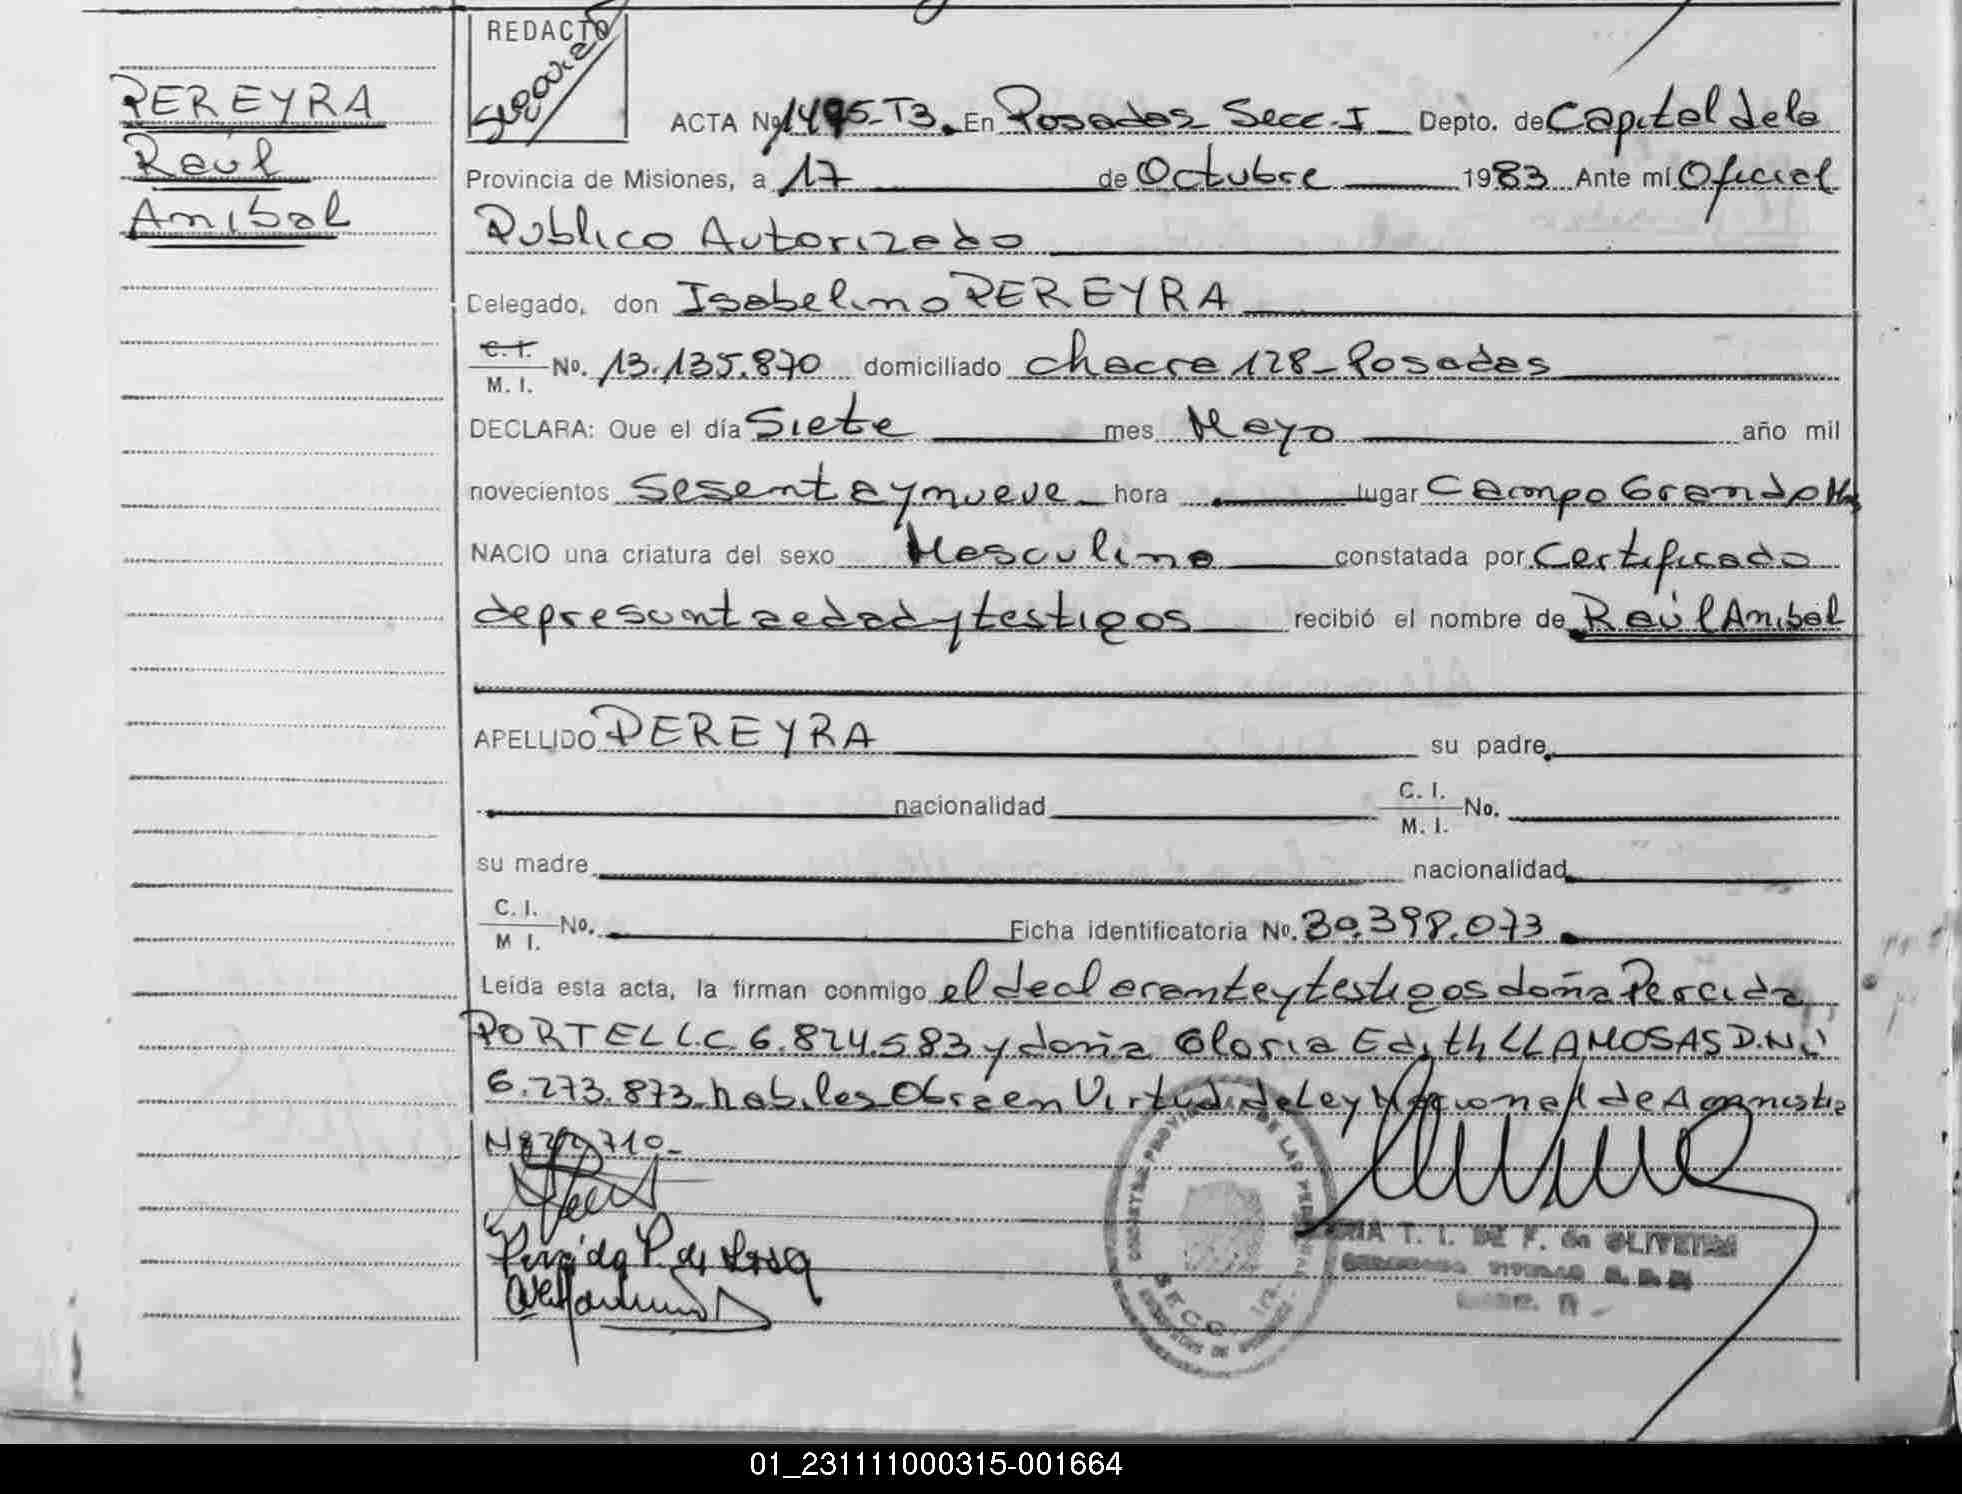 REDACTO
PEREYRA
Raúl
Anibal
ACTA Nº 1495-T3. En Posadas Secc-I Depto. de Capital de la
Provincia de Misiones, a 17 de Octubre 1983 Ante mí Oficial
Publico Autorizado
Delegado, don Isabelino PEREYRA
C. I.
M. I. No. 13.135.870 domiciliado chacra 128-Posadas
DECLARA: Que el día Siete mes Mayo año mil
novecientos Sesenta y nueve hora lugar Campo Grande
NACIO una criatura del sexo Masculino constatada por Certificado
de presunta edad y testigos recibió el nombre de Raúl Anibal
APELLIDO PEREYRA su padre
nacionalidad C. I.
M. I. No.
su madre nacionalidad
C. I.
M I. No. Ficha identificatoria No. 30.398.073
Leída esta acta, la firman conmigo el declarante y testigos doña Percida
PORTEL L.C. 6.824.583 y doña Gloria Edith LLAMOSAS D.N.I
6.273.873 habiles Obra en Virtud de Ley Nacional de Amnistia
710-
01_231111000315-001664